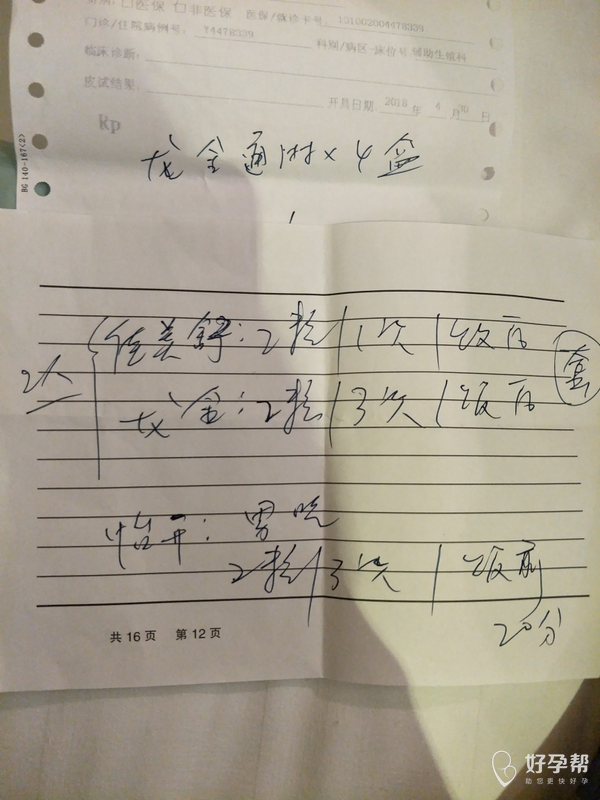 口医保 口非医保 医保/就诊卡号:
门诊/住院病例号: 74478339 科别/病区·床位号 辅助生殖科
临床诊断:
皮试结果:
开具日期 2018 年 4 月 30 日
Rp
BG 140-167(2)
龙金通淋×4盒
佳美舒: 2粒/1次/饭后
2人
龙金: 2粒/3次/饭后
怡开: 男吃
2粒/3次/饭前
20分
共 16 页 第 12 页
好孕帮
助您更快好孕